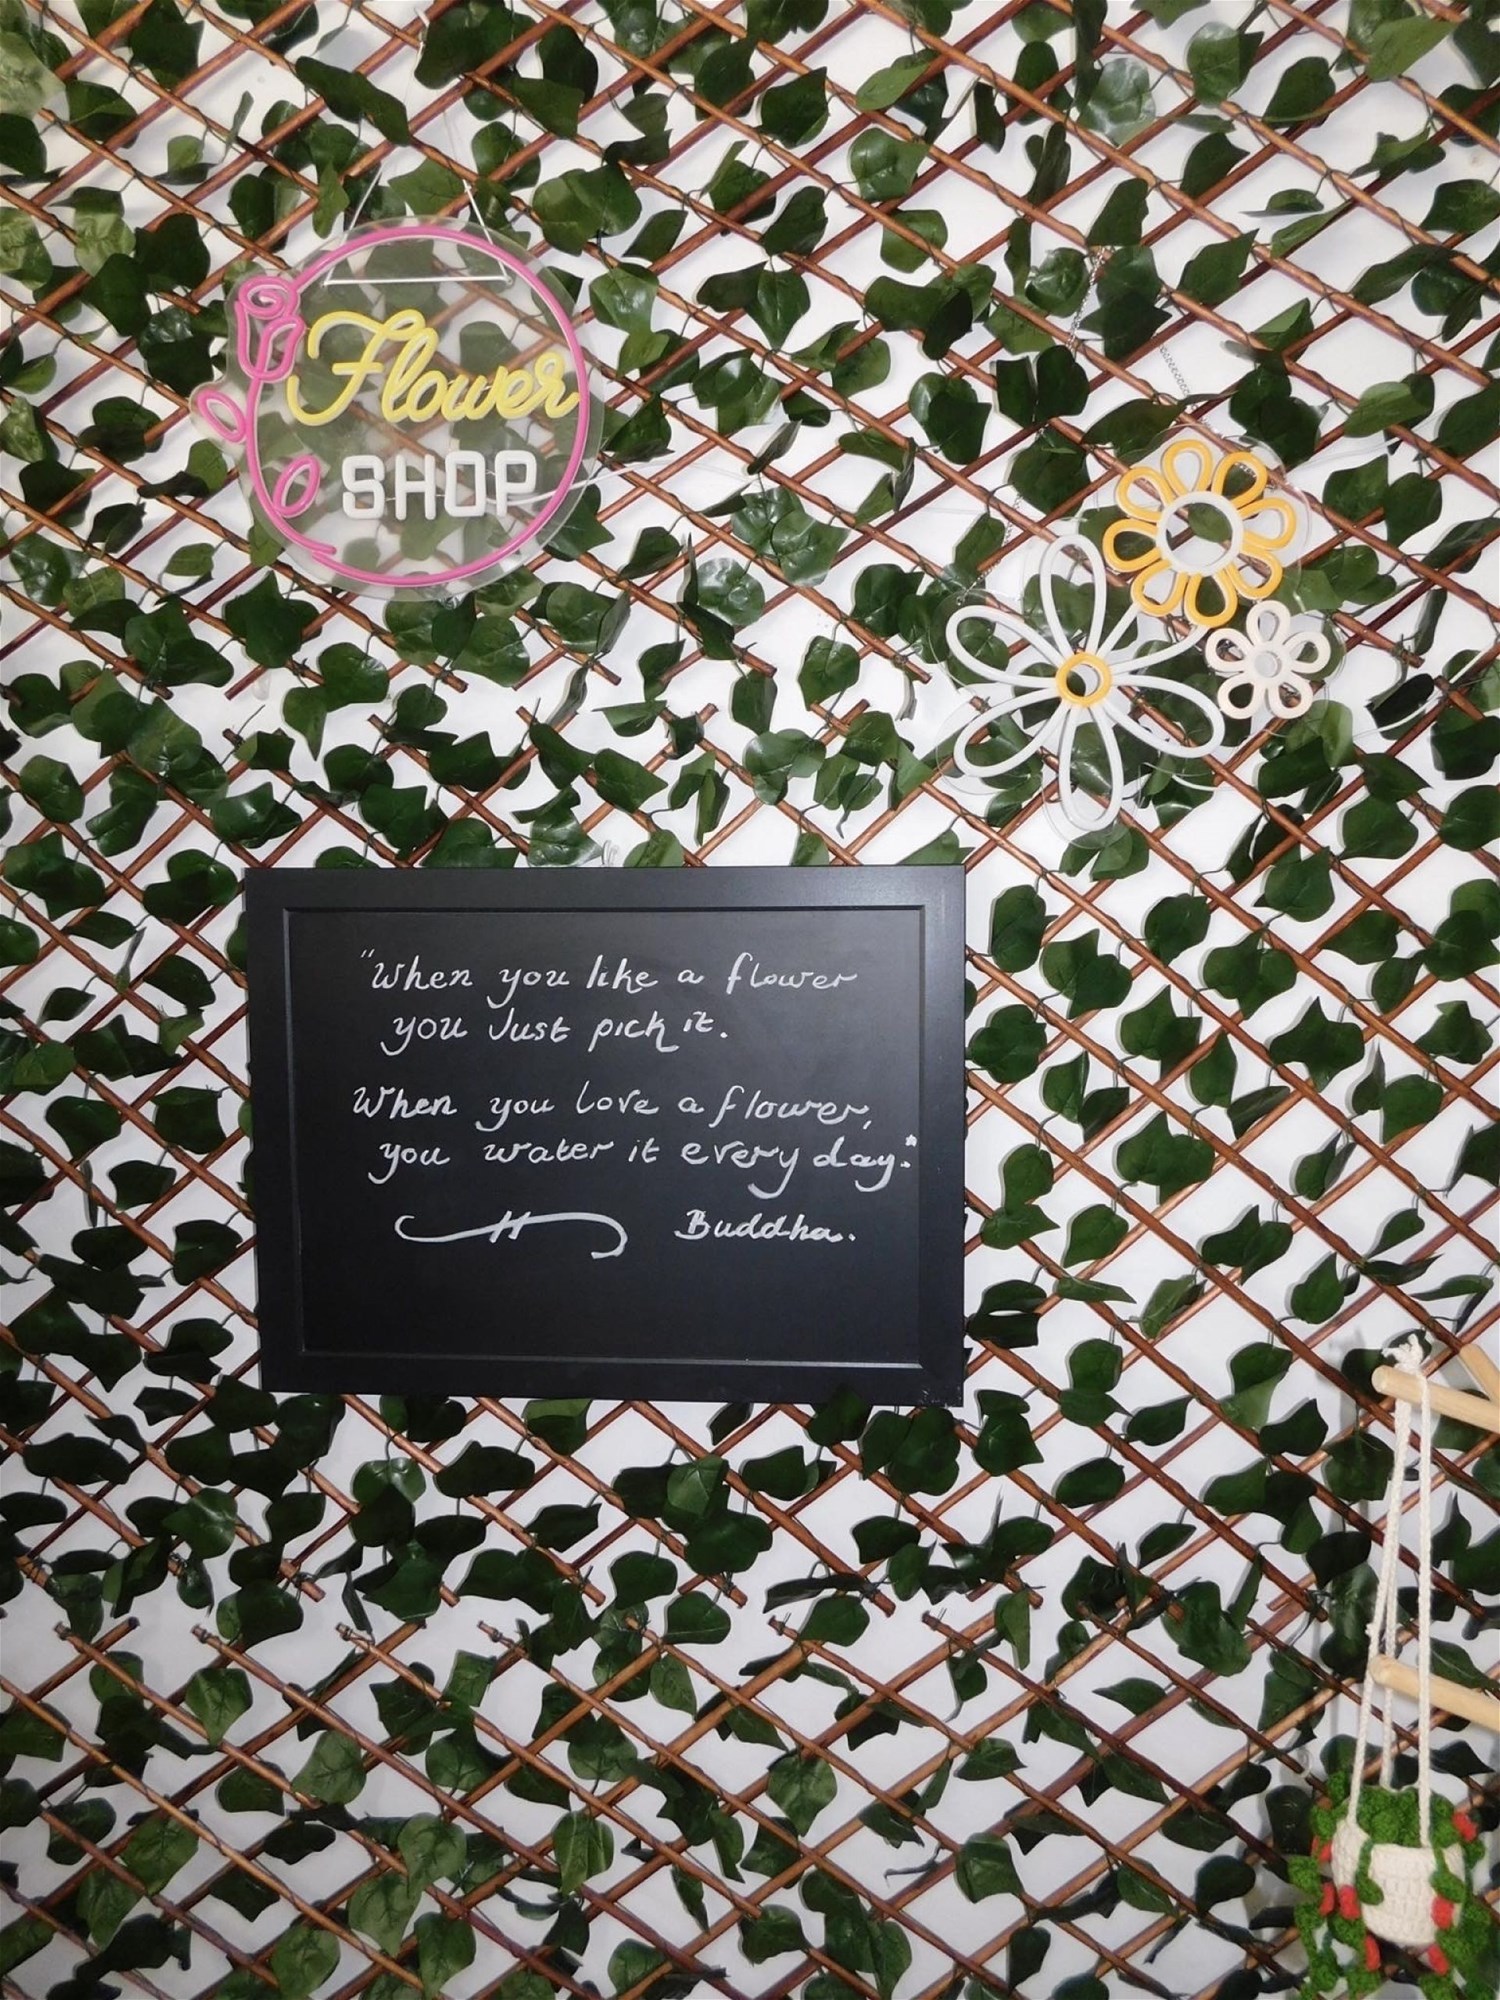 Flower
SHOP
"When you like a flower
you Just pick it.
When you love a flower,
you water it every day."
Buddha.